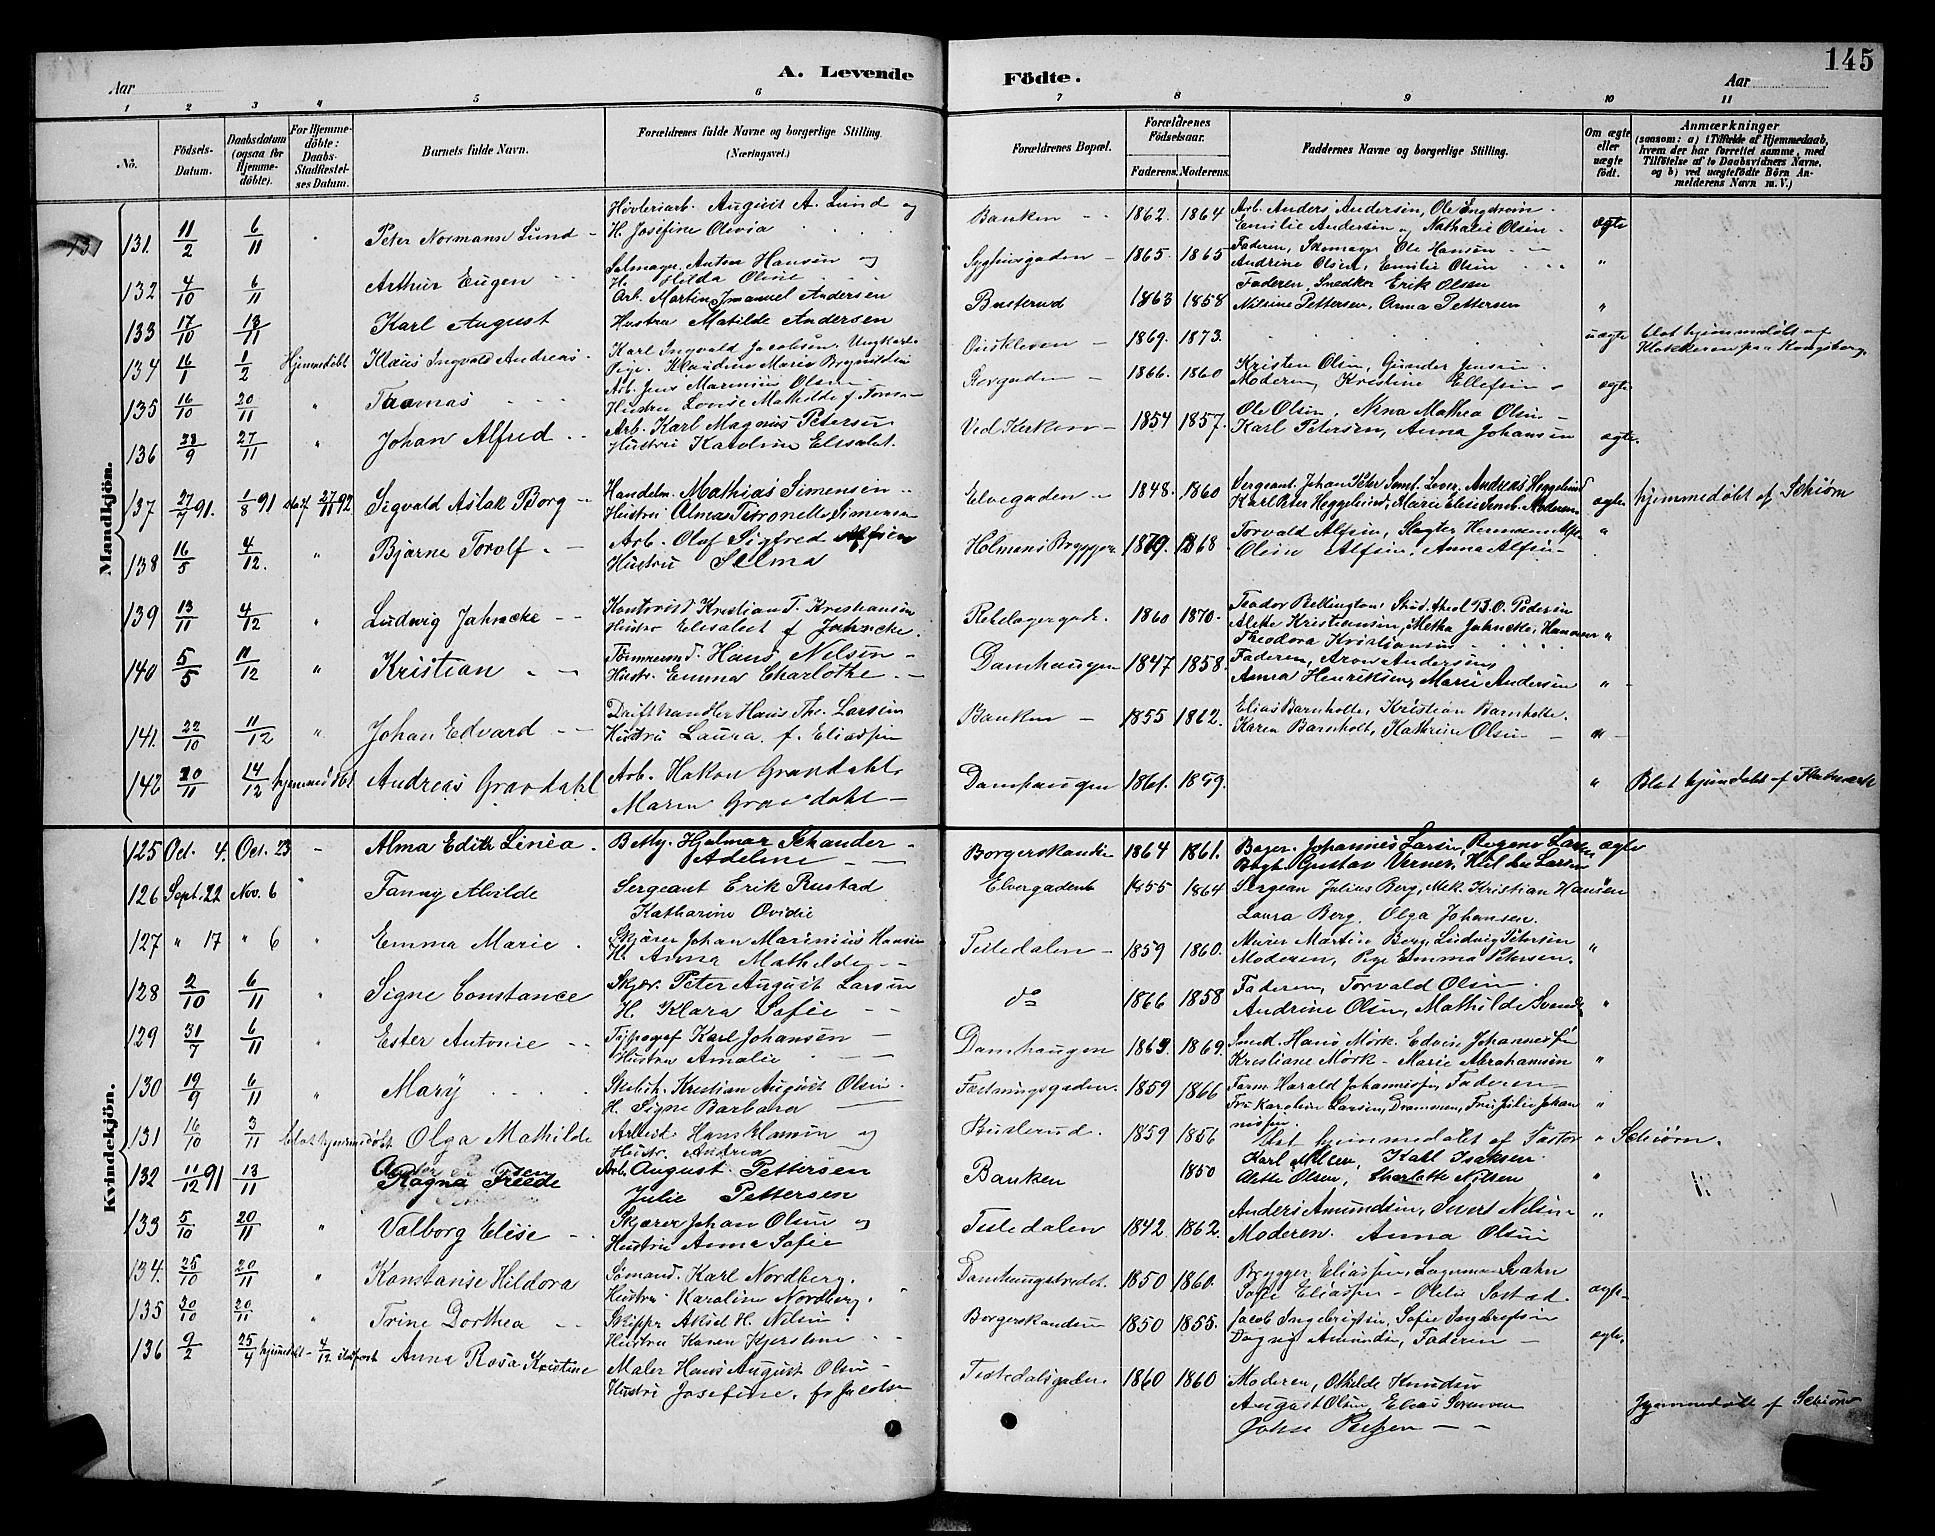 145
A. Levende Födte.
Aar
Aar
1 2 3 4 5 6 7 8 9 10 11
No.
Födsels-Datum.
Daabsdatum (ogsaa for Hjemme-döbte).
For Hjemme-döbte: Daabs-Stadfæstel-ses Datum.
Barnets fulde Navn.
Forældrenes fulde Navne og borgerlige Stilling. (Næringsvei.)
Forældrenes Bopæl.
Forældrenes Födselsaar.
Faderens. Moderens.
Faddernes Navne og borgerlige Stilling.
Om ægte eller uægte födt.
Anmærkninger
(saasom: a) i Tilfælde af Hjemmedaab, hvem der har forrettet samme, med Tilföielse af to Daabsvidners Navne, og b) ved uægtefödte Börn An-melderens Navn m. V.)
Mandkjön.
131. 11/2 6/11 Peter Normann Lund - Høvleriarb. August A. Lund og Banken 1862. 1864 Arb. Anders Andersen, Ole Engstrøm. ægte
H. Josefine Olivia Emilie Andersen, Nathalie Olsen
132 4/10 6/11 Arthur Eugen Anton Hansen og Syghusgaden 1865. 1865 Faderen, Skomager Ole Hansen "
H. Hilda Oline Andrine Olsen, Emilie Olsen
133 17/10 13/11 Karl August Arb. Martin Imanuel Andersen Busterud 1863 1858 Faderen, Snedker Erik Olsen "
Hustru Matilde Andersen Nilsine Pettersen, Anna Pettersen
134 16/1 1/2 Hjemmedöbt Klaus Ingvald Andreas Karl Ingvald Jacobsen. Ungkarl 1869. 1873. uægte blot hjemmedöbt af
Pige. Klaudine Marie Klokkeren paa Kongsberg
135 16/10 20/11 " Thomas Arb. Jens Marinius Olsen Storgaden 1866. 1860 Kristen Olsen, Gunder Jensen. ægte
Hustru Lovise Mathilde Moderen, Kristine Ellefsen
136 28/9 27/11 " Johan Alfred Arb. Karl Magnus Petersen Ved Kirken 1854 1857. Ole Olsen, Mathea Olsen ægte.
Hustru Karoline Elisabet. Karl Petersen, Anna Johansen
137 27/7 91. 1/8 91 27/11 92 Sigvald Aslak Borg Handelm. Mathias Simensen Elvegaden 1848. 1860 Sergeant Johan Peter ægte hjemmedöbt af Schiörn
Hustru Alma Petronelle Simensen Heggelund, Marie Elise Moderen
138 16/5 4/12. " Bjarne Torolf Arb. Olaf Sigfred Alfsen Holmens Brygger 1869. 1868 Torvald Alfsen, Slagter Herman "
Hustru Selma Olsen Alfsen, Anna Alfsen
139 13/11 4/12 " Ludwig Jahncke Kristian T. Kristiansen 1860 1870. Teodor Bellington, Stud. theol B.O. Pedersen
Hustru Elisabet f Jahncke. Alette Kristiansen, Metha Jahncke, Hansen "
Theodora Kristiansen
140 5/5 11/12 " Kristian Tømmermd. Hans Nilsen Damhaugen 1847 1858. Faderen, Aron Andersen,
Hustr. Emma Charlothe Anna Henriksen, Marie Andersen "
141. 22/10 11/12 " Johan Edvard Hans Th. Larsen Banken 1855 1862. Elias Barnholt, Kristian Barnholt.
Hustru Laura f. Eliassen Karen Barnholt, Kathrine Olsen "
142 20/11 14/12 hjemmedöbt Andreas Grandahl Arb. Hakon Grandahl. Damhaugen 1861. 1859. " Blot hjemdöbt af
Maren Grandahl
Kvindekjön.
125 Oct. 4. Oct. 23 - Alma Edith Linea. Hjalmar Schander Borgerskansen 1864 1861. Bager. Johannes Larsen, Larsen ægte
Adeline Gustav Verner, Larsen
126 Sept. 22 Nov. 6 " Fanny Alvilde Sergeant Erik Rustad Elvegaden 1855 1864 Julius Berg, Mek. Kristian Hansen
Katharine Ovidie Laura Berg, Olga Johansen.
127 " 17 " 6 " Emma Marie Skjærer Johan Marinius Hansen Tistedalen 1859 1860. Murer Martin Berg, Ludvig Petersen "
H. Anna Mathilde Moderen, Pige Emma Petersen.
128 2/10 6/11 " Signe Constance Skjær. Peter August Larsen do 1866 1858 Faderen, Torvald Olsen.
H. Klara Sofie Andrine Olsen, Mathilde "
129 31/7 6/11 " Ester Antonie Typograf Karl Johansen Damhaugen 1869. Smed. Hans Mörk.
Hustru Amalie Kristiane Mörk - Marie Abrahamsen "
130 19/9 6/11 " Mary Kristian August Olsen. Fæstningsgaden. 1859 1866 Harald Johannessen, Faderen
H. Signe Barbara Fru Karoline Larsen, Drammen, Fru Julie Johan "
nissen.
131 16/10 3/11 blot hjemmedöbt Olga Mathilde Arbeid. Hans Hansen og Busterud. 1859 1856 blot hjemmedöbt af Pastor " Schiörn.
Hustr. Andrea
132 11/12 91 13/11 Ragna Frieda Arb. August Pettersen Banken 1850 Karl Nilsen, Karl Isaksen.
Julie Pettersen Alette Olsen, Charlotte Nilsen "
133 5/10 20/11 " Valborg Elise Skjærer Johan Olsen og Tistedalen 1842 1862. Anders Amundsen, Nilsen "
Hustru Anna Sofie Moderen. Anna Olsen
134. 25/10 20/11 " Konstanse Hildora Sömand. Karl Nordberg. Damhaugstrædet. 1850 1860. Brygger Eliassen, Svahn
Hustru Karoline Nordberg. Sofie Eliassen - ægte
135 30/10 20/11 " Trine Dorthea Skipper H. Nilsen. Borgerskansen 1850 1855. Jacob Ingebrigtsen, Sofie Ingebrigtsen
Hustru Karen Kjerstine Dagvig Amundsen, Faderen ægte.
136 9/2 25/4 hjemmedöbt - 4/12 Anna Rosa Kristine Maler Hans August Olsen Tistedalsgaden. 1860 1860 Moderen, Othilde Knudsen
Hustru Josefine. August Olsen, Elias Sörensen Hjemmedöbt af Schiörn